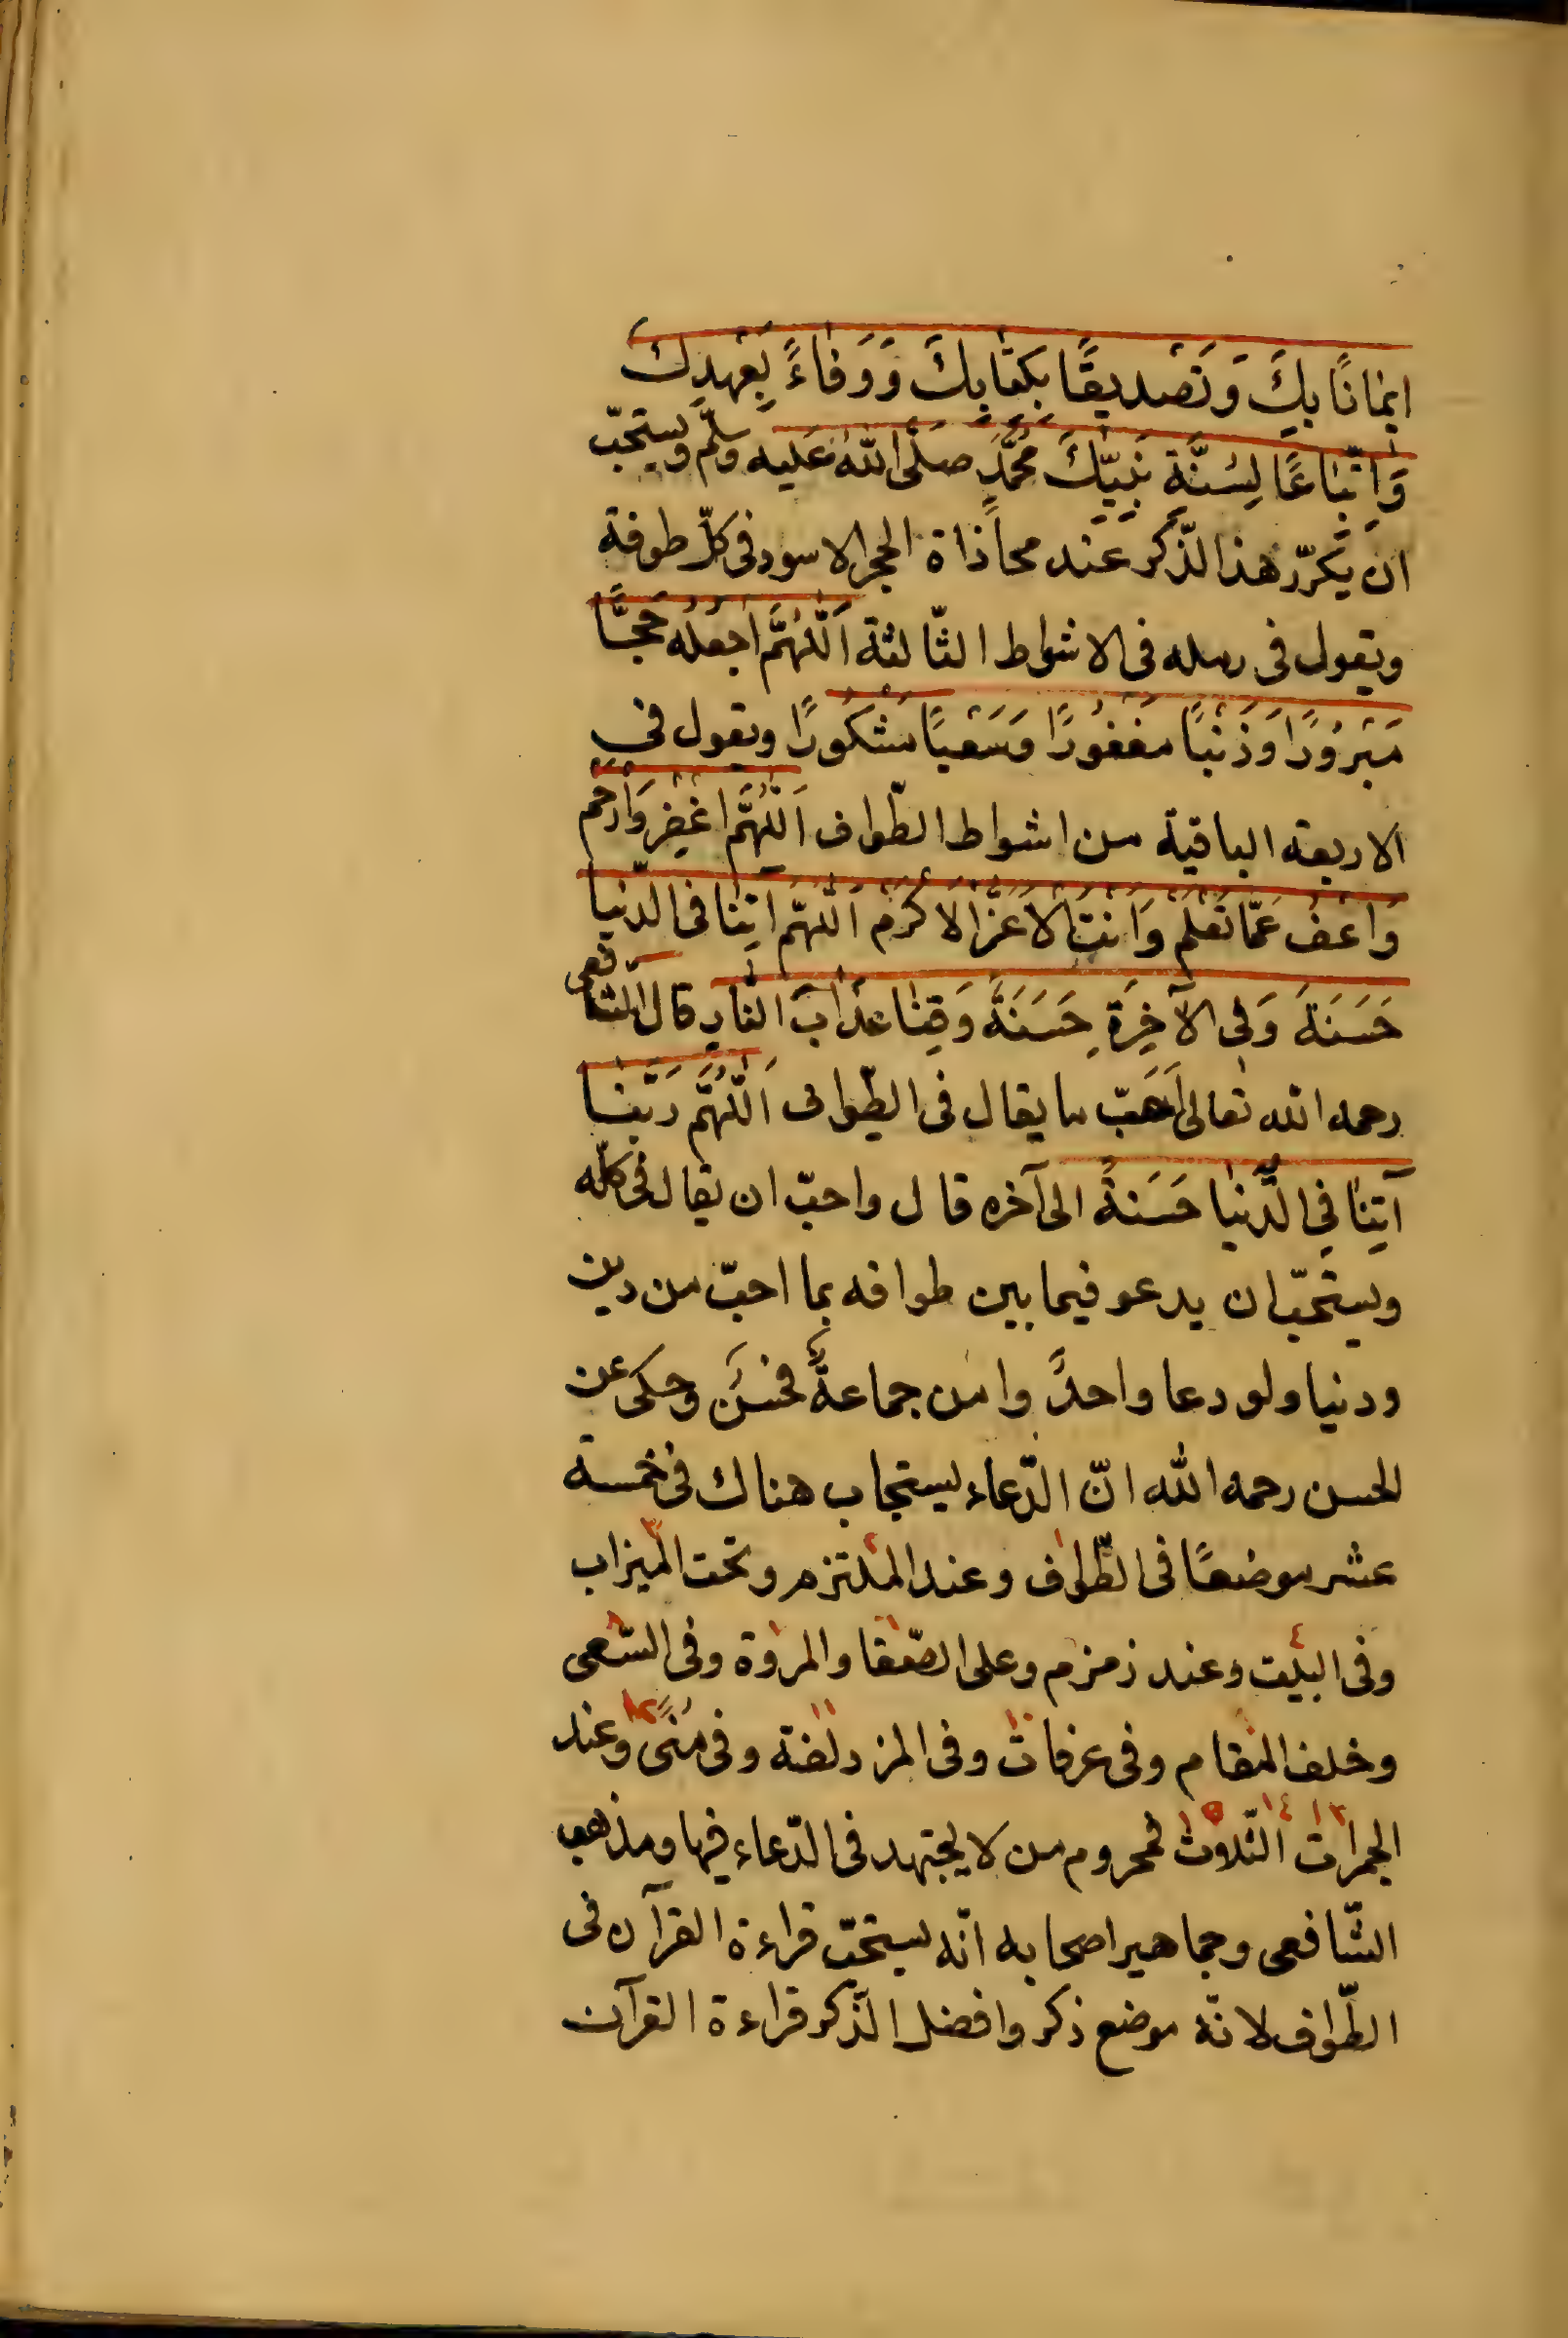 ايمَانًا بِكَ وَتَصْديقًا بِكتَابِكَ وَوَفاءً بِعَهدِكَ
وَاتِّبَاعًا لِسُنَّةِ نَبِيِّكَ مُحَمَّدٍ صَلَّى اللهُ عَليه وسلّم ويستحبّ
ان يكرّر هذا الذّكر عند محاذاة الحجر الاسود فى كلّ طوفة
ويقول فى رمله فى الاشواط الثّالثة اَللّٰهُمَّ اجْعَلْهُ حَجًّا
مَبْرُورًا وَذَنْبًا مَغْفُورًا وَسَعْيًا مَشْكُورًا ويقول في
الاربعة الباقية من اشواط الطّواف اَللّٰهُمَّ اغْفِر وَارْحَم
وَاعْفُ عَمّا تَعْلَم وَاَنْتَ الاَعَزُّ الاَكْرَم اَللّٰهُمّ آتِنَا فى الدّنيا
حَسَنَة وَفى الآخِرَةِ حَسَنَةً وَقِنا عَذابَ النّارِ قال الشّافعى
رحمه الله تعالى اَحَبّ ما يقال فى الطّواف اَللّٰهُمَّ رَبَّنا
آتِنَا فِى الدُّنْيا حَسَنةً الى آخره قال واحبّ ان يقال فى كلّه
ويستحبّ ان يدعو فيما بين طوافه بما احبّ من دين
ودنيا ولو دعا واحدٌ وامن جماعةٌ فحسَن وحكى عن
الحسن رحمه الله انّ الدّعاء يستجاب هناك فى خمسة
عشر موضعًا فى الطّواف وعند الملتزم وتحت الميزاب
وفى البيت وعند زمزم وعلى الصّفا والمروة وفى السّعى
وخلف المقام وفى عرفات وفى المزدلفة وفى منىً وعند
الجمرات الثّلاث فمحروم من لا يجتهد فى الدّعاء فيها ومذهب
الشّافعى وجماهير اصحابه انّه يستحبّ قراءة القرآن فى
الطّواف لانّه موضع ذكر وافضل الذّكر قراءة القرآن